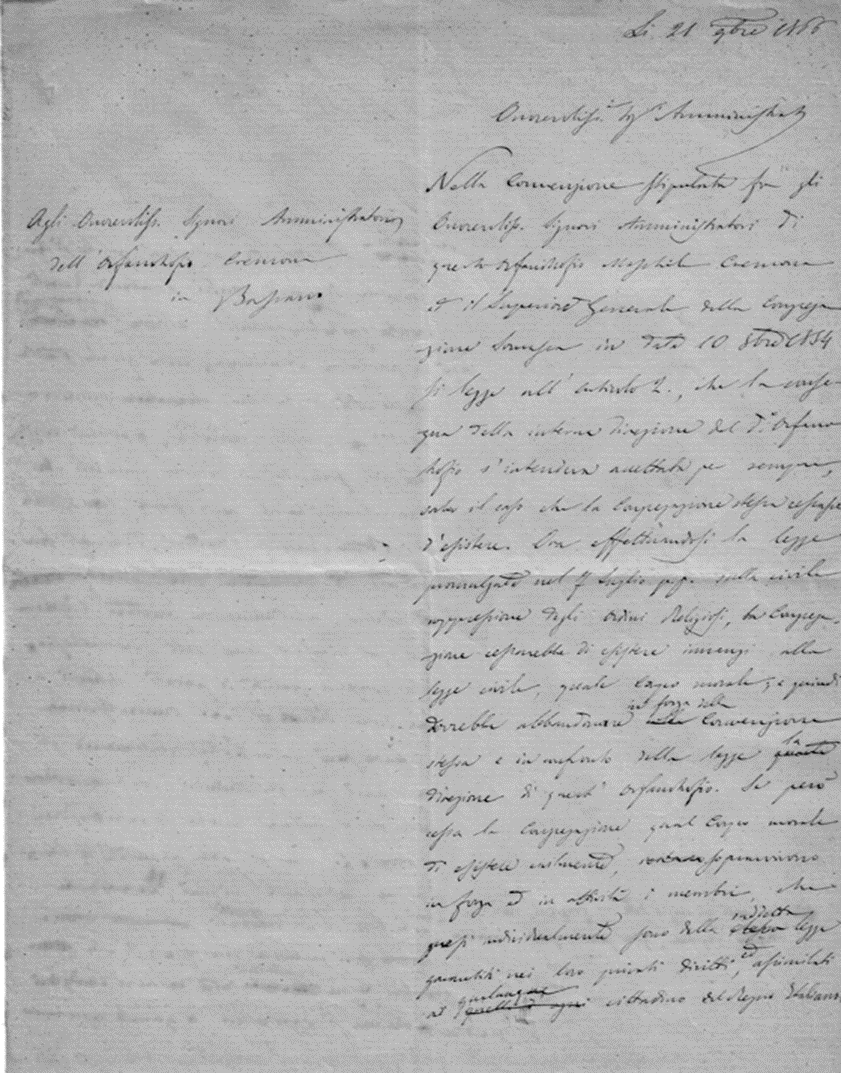 Li 21 9bre 1866
Onorevoliss.i Sig.i Amministrat
Agli Onorevoliss. Signori Amministratori
dell'Orfanotrofio Cremona
in Bassano
Nella Convenzione stipulata fra gli
Onorevoliss. Signori Amministratori di
questo Orfanotrofio Maschile Cremona
ed il Superiore Generale della Congrega
zione Somasca in data 10 8bre 1854
si legge all'articolo 2., che la conse-
gna della interna direzione del d.o Orfano
trofio s'intendeva accettata per sempre,
salvo il caso che la Congregazione stessa cessasse
d'esistere. Ora effettuandosi la legge
promulgata nel 7 Luglio p.p. sulla civile
soppressione degli Ordini Religiosi, la Congrega-
zione cesserebbe di esistere innanzi alla
legge civile, quale Corpo morale; e quindi
dovrebbe abbandonare in forza della Convenzione
stessa e in confronto della legge la
direzione di questo Orfanotrofio. Se però
cessa la Congregazione qual Corpo morale
di esistere civilmente, sopravvivono
in forza ed in attività i membri, che
presi individualmente sono dalla suddetta legge
garantiti nei loro privati diritti, ed assimilati
al qualunque cittadino del Regno Italiano